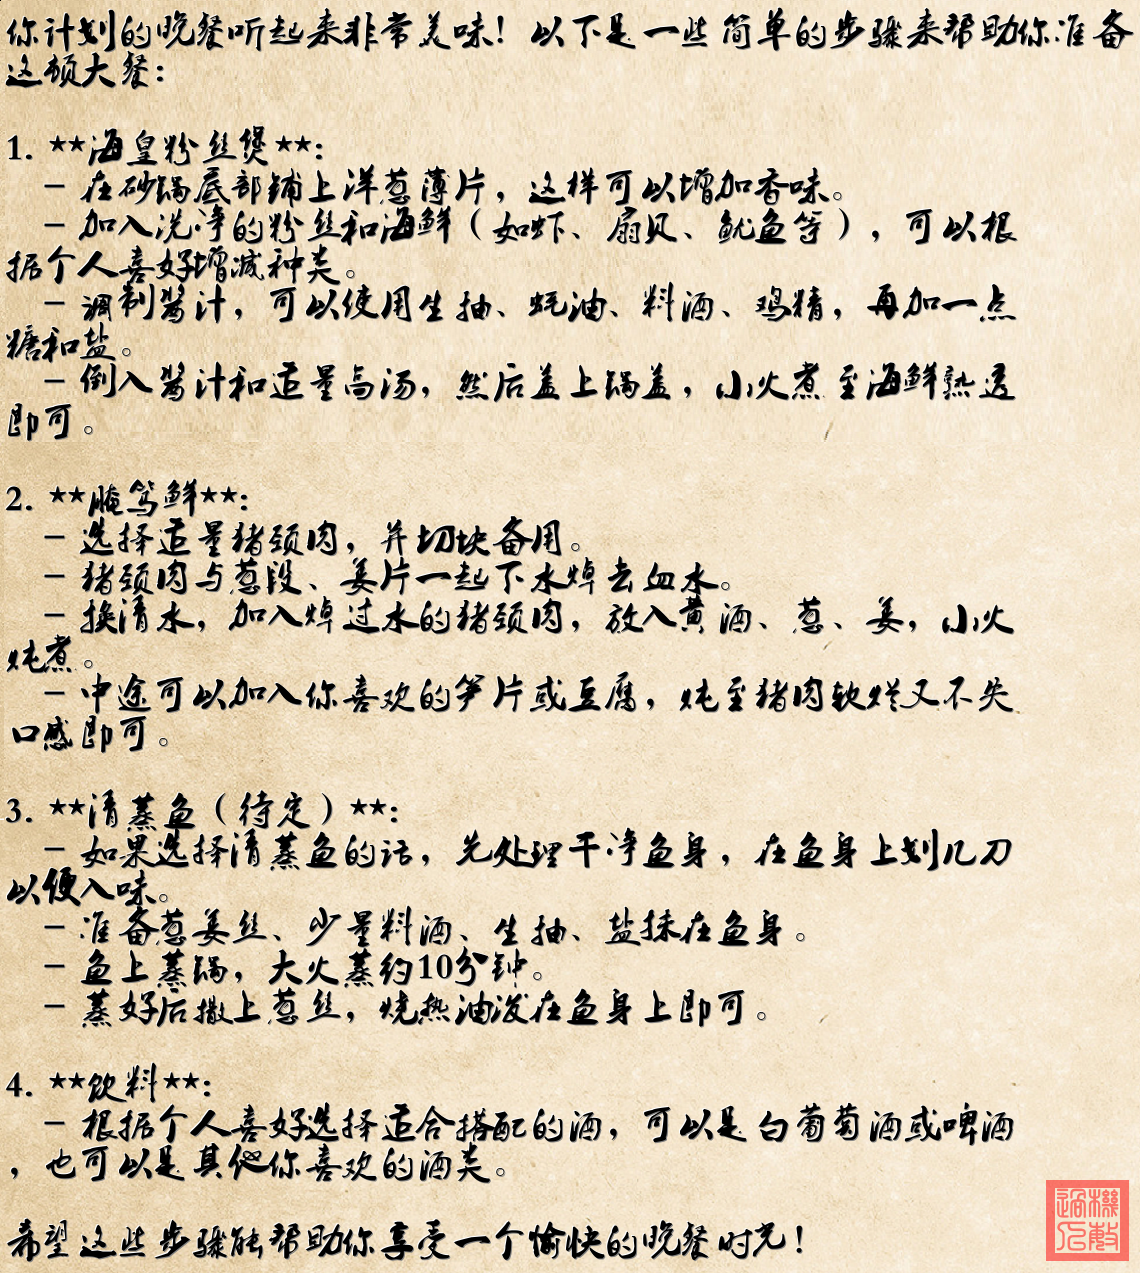 你计划的晚餐听起来非常美味！以下是一些简单的步骤来帮助你准备
这顿大餐：
1. **海皇粉丝煲**：
- 在砂锅底部铺上洋葱薄片，这样可以增加香味。
- 加入洗净的粉丝和海鲜（如虾、扇贝、鱿鱼等），可以根
据个人喜好增减种类。
- 调制酱汁，可以使用生抽、蚝油、料酒、鸡精，再加一点
糖和盐。
- 倒入酱汁和适量高汤，然后盖上锅盖，小火煮至海鲜熟透
即可。
2. **腌笃鲜**：
- 选择适量猪颈肉，并切块备用。
- 猪颈肉与葱段、姜片一起下水焯去血水。
- 换清水，加入焯过水的猪颈肉，放入黄酒、葱、姜，小火
炖煮。
- 中途可以加入你喜欢的笋片或豆腐，炖至猪肉软烂又不失
口感即可。
3. **清蒸鱼（待定）**：
- 如果选择清蒸鱼的话，先处理干净鱼身，在鱼身上划几刀
以便入味。
- 准备葱姜丝、少量料酒、生抽、盐抹在鱼身。
- 鱼上蒸锅，大火蒸约10分钟。
- 蒸好后撒上葱丝，烧热油泼在鱼身上即可。
4. **饮料**：
- 根据个人喜好选择适合搭配的酒，可以是白葡萄酒或啤酒
，也可以是其他你喜欢的酒类。
希望这些步骤能帮助你享受一个愉快的晚餐时光！